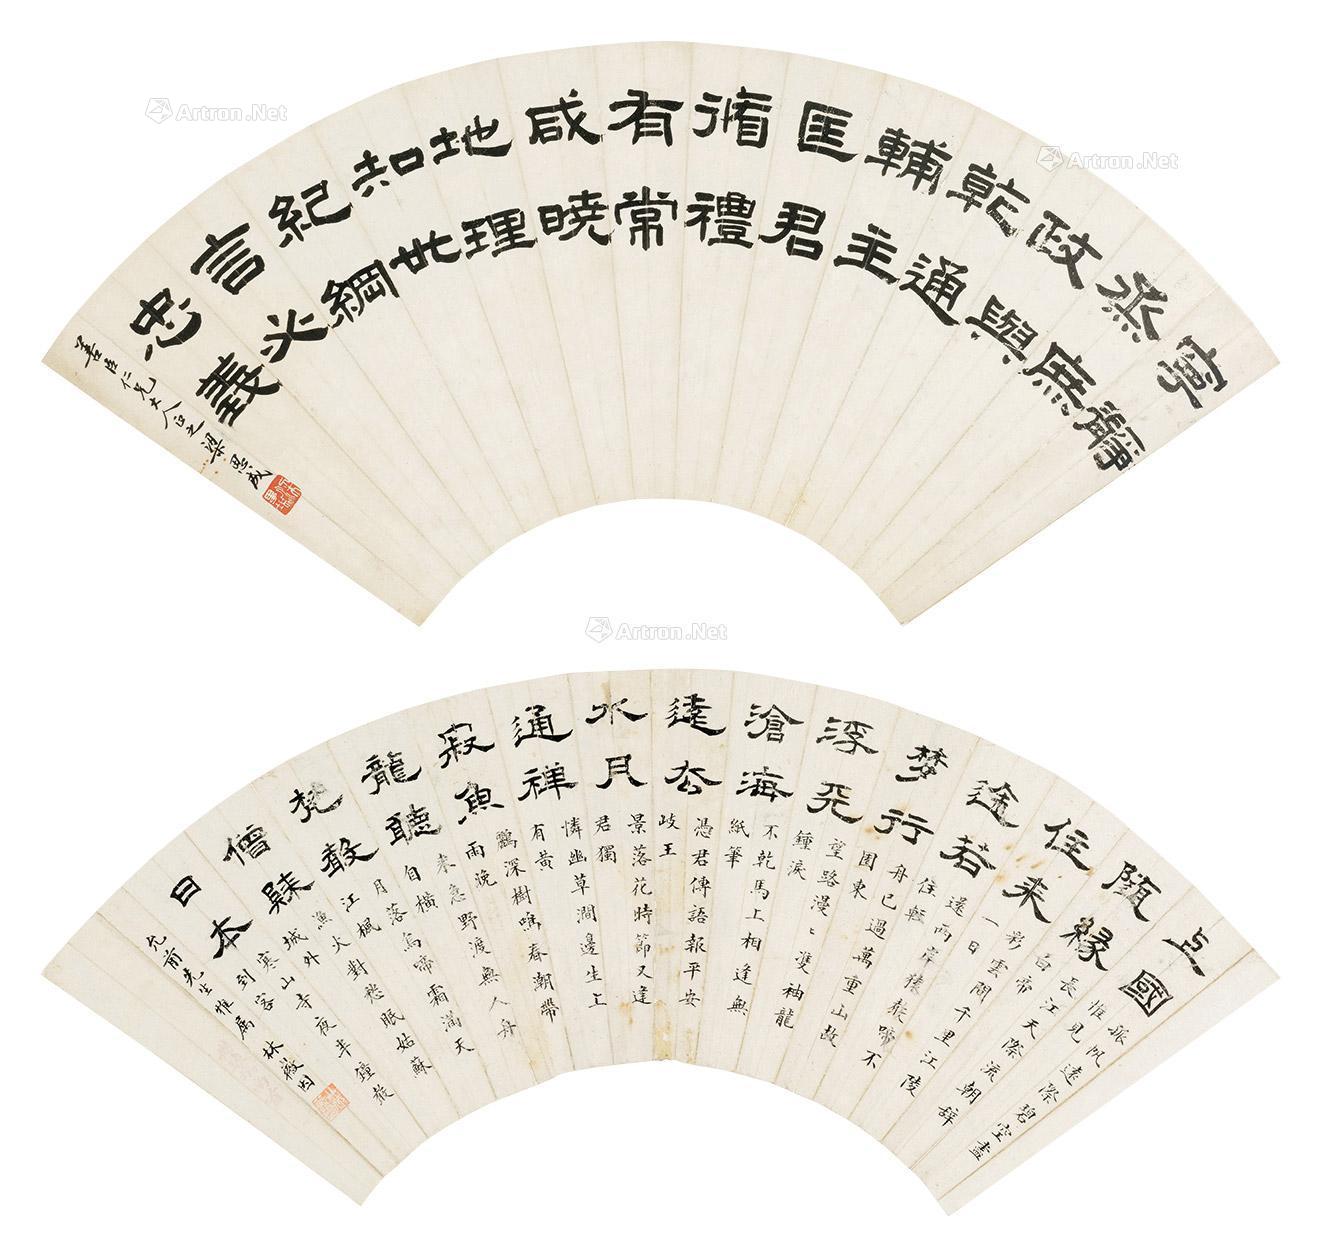 寧靜
烝庶
政與
乾通
輔主
匡君
循禮
有常
咸曉
地理
知世
紀綱
言必
忠義
善臣仁兄大人正之 梁思成
上國
隨緣
住來
途若
夢行
浮天
滄海
遠公
水月
通禪
寂魚
龍聽
梵聲
僧歸
日本
孤帆遠際碧空盡
惟見
長江天際流朝辭
白帝
彩雲間千里江陵
一日
還兩岸猿聲啼不
住輕
舟已過萬重山故
園東
望路漫〻雙袖龍
鍾淚
不乾馬上相逢無
紙筆
憑君傳語報平安
岐王
景落花時節又逢
君獨
憐幽草澗邊生上
有黃
鸝深樹鳴春潮帶
雨晚
來急野渡無人舟
自橫
月落烏啼霜滿天
江楓
漁火對愁眠姑蘇
城外
寒山寺夜半鐘聲
到客
允前先生雅屬 林徽因
Artron.Net
Artron.Net
Artron.Net